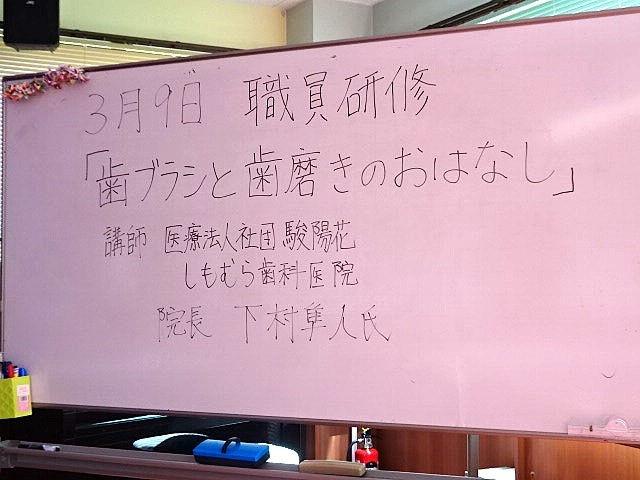 3月9日 職員研修
「歯ブラシと歯磨きのおはなし」
講師 医療法人社団 駿陽花
しもむら歯科医院
院長 下村隼人氏